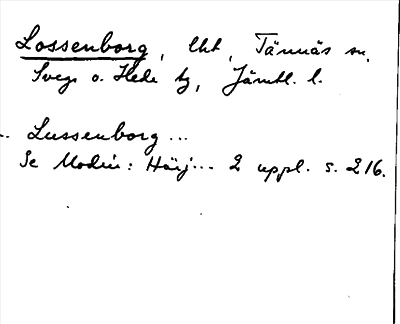 Lossenborg, lht, Tännäs sn,
Svegs o. Hede tg, Jämtl. l.
.. Lussenborg...
Se Modin: Härj... 2 uppl. s. 216.